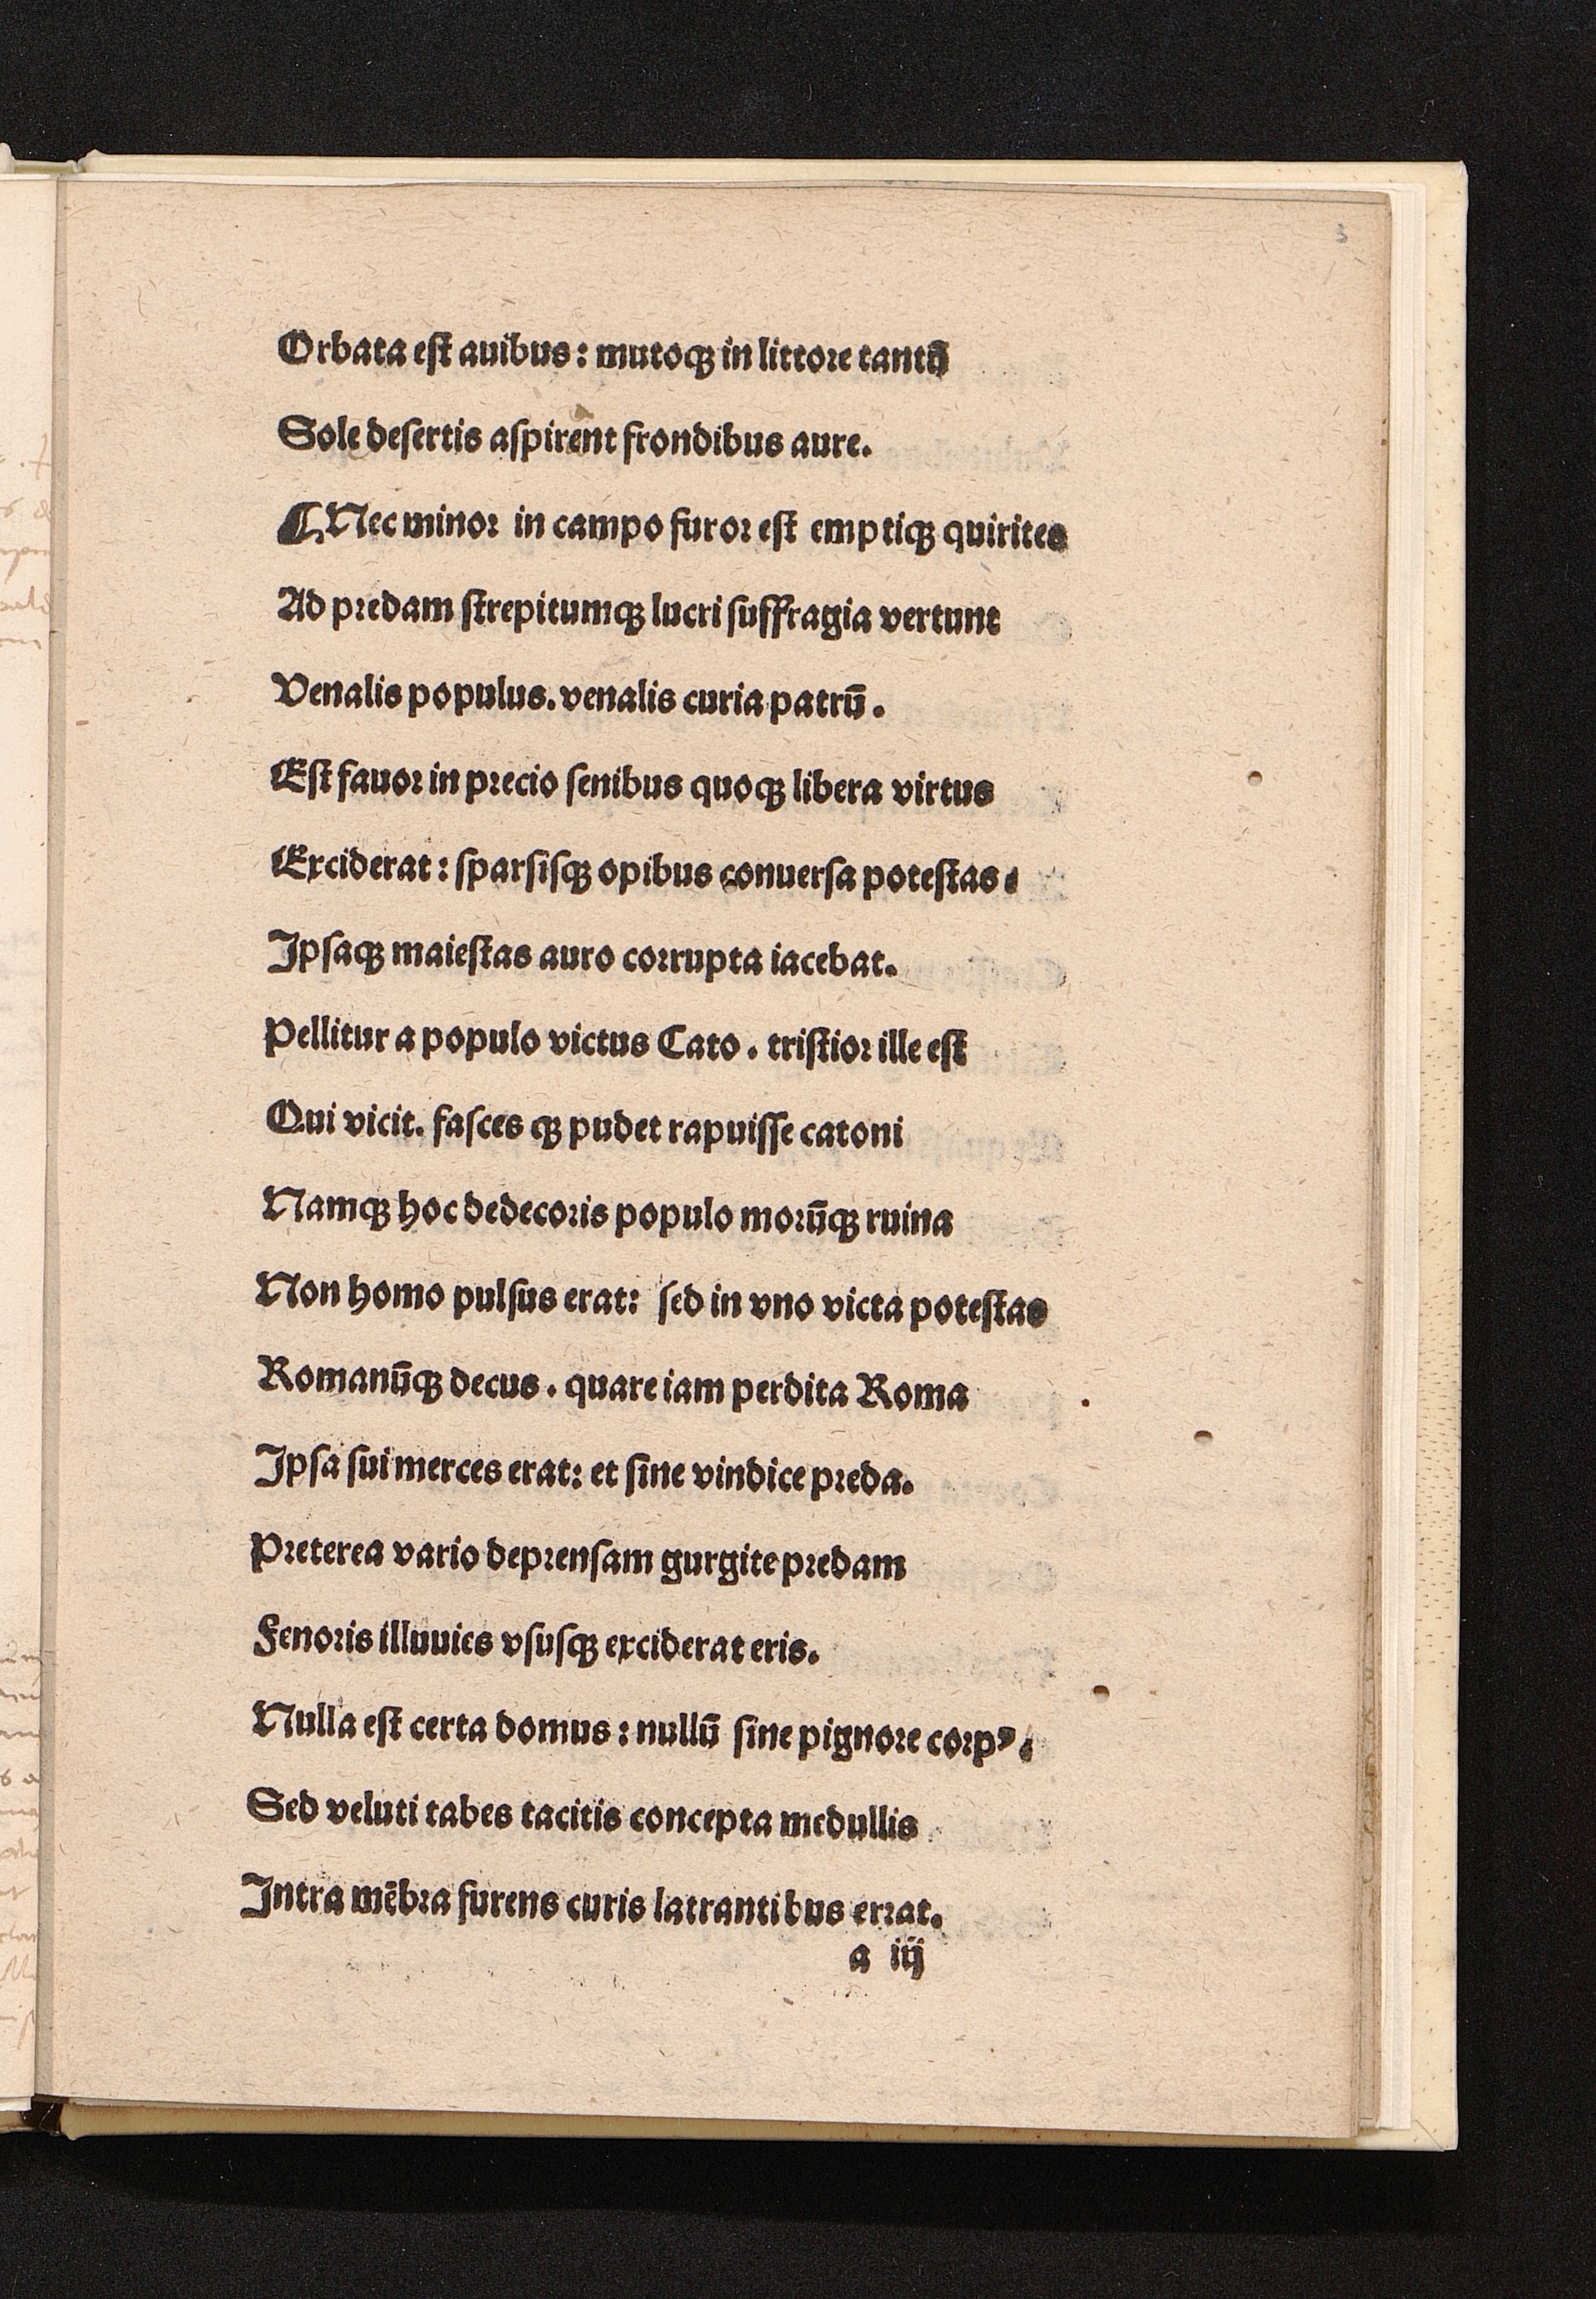 3
Orbata eſt auibus: mutoqꝫ in littore tantū
Sole deſertis aſpirent frondibus aure.
¶ Nec minoꝛ in campo furoꝛ eſt emptiqꝫ quirites
Ad pꝛedam ſtrepitumqꝫ lucri ſuffragia vertunt
Venalis populus. venalis curia patrū.
Eſt fauoꝛ in pꝛecio ſenibus quoqꝫ libera virtus
Exciderat: ſparſiſqꝫ opibus conuerſa poteſtas.
Ipſaqꝫ maieſtas auro coꝛrupta iacebat.
Pellitur a populo victus Cato. triſtioꝛ ille eſt
Qui vicit. faſces qꝫ pudet rapuiſſe catoni
Namqꝫ hoc dedecoꝛis populo moꝛūqꝫ ruina
Non homo pulſus erat: ſed in vno victa poteſtas
Romanūqꝫ decus. quare iam perdita Roma
Ipſa ſui merces erat: et ſine vindice pꝛeda.
Pꝛeterea vario depꝛenſam gurgite pꝛedam
Fenoꝛis illuuies vſuſqꝫ exciderat eris.
Nulla eſt certa domus: nullū ſine pignoꝛe coꝛpꝰ.
Sed veluti tabes tacitis concepta medullis
Intra mēbꝛa furens curis latrantibus erꝛat.
a iij